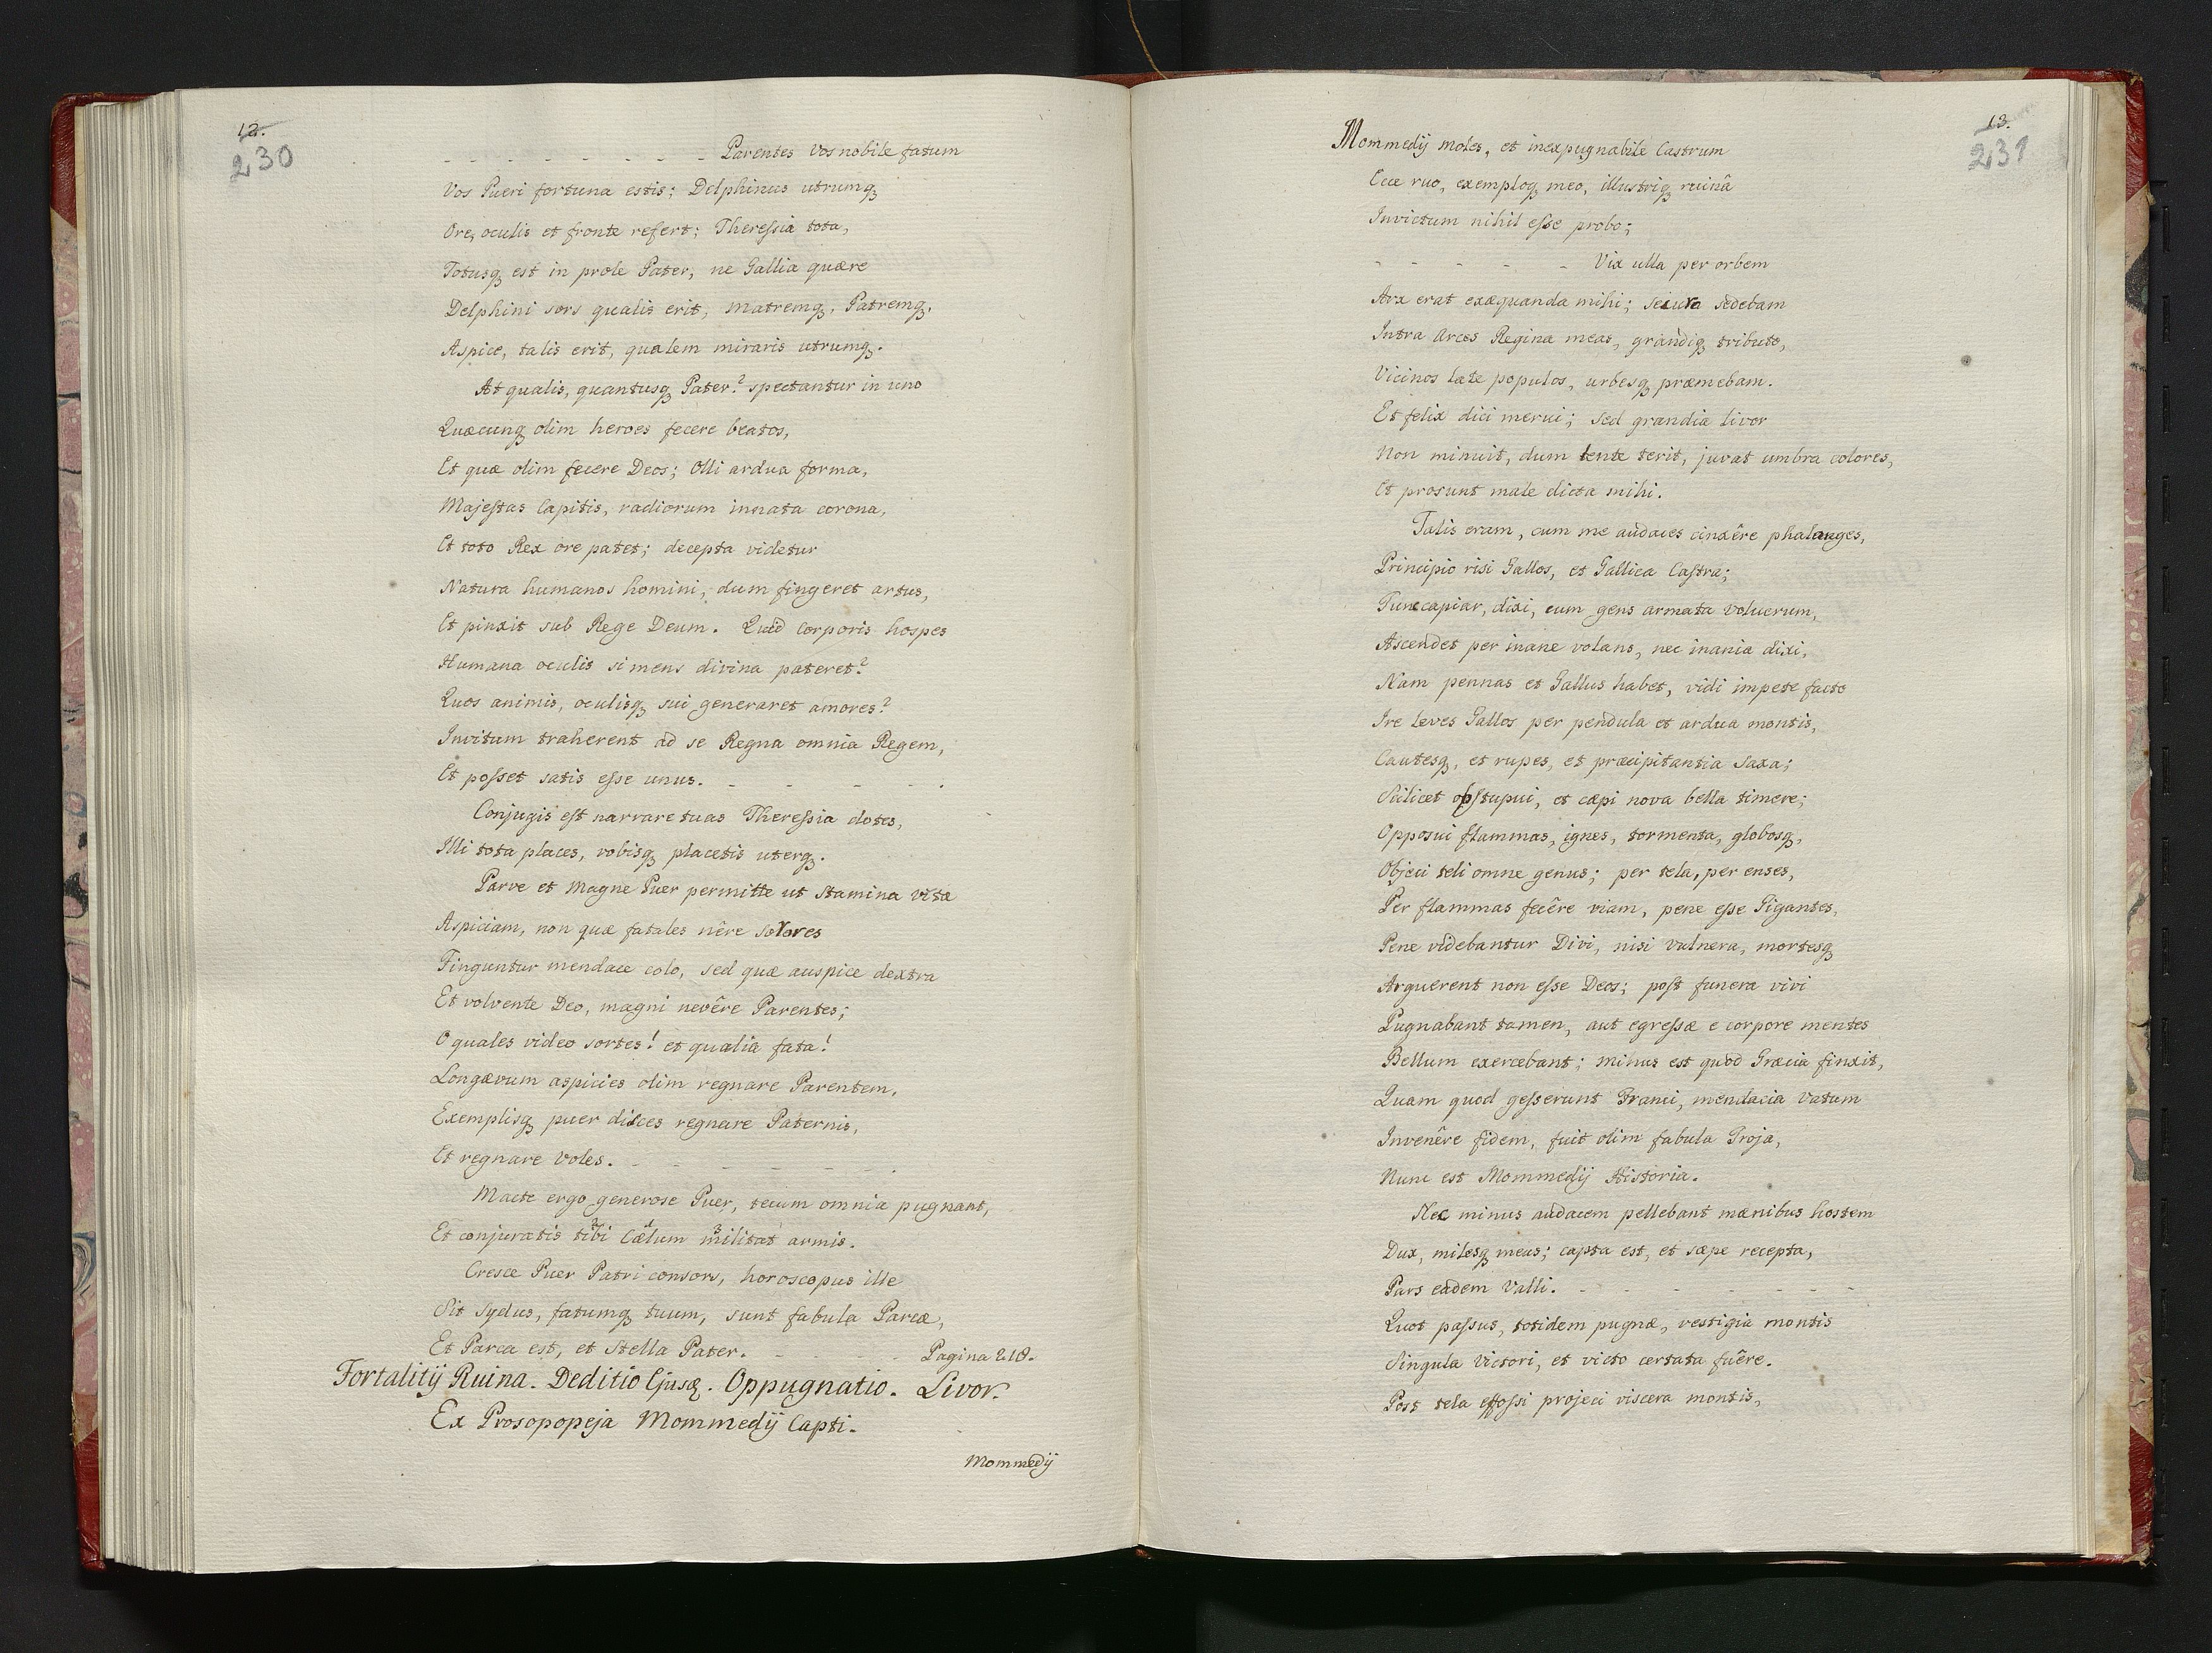 12.
230
- - - - - - - - - Parentes vos nobile fatum
Vos Pueri fortuna estis; Delphinus utrumq
Ore, oculis et fronte refert; Theressia tota,
Totusq est in prole Pater, ne Gallia quære
Delphini sors qualis erit, Matremq, Patremq,
Aspice, talis erit, qualem miraris utrumq.
At qualis, quantusq Pater? spectantur in uno
Quæcunq olim heroes fecere beatos,
Et quæ olim fecere Deos; Olli ardua forma,
Majestas Capitis, radiorum innata corona,
Et toto Rex ore patet; decepta videtur
Natura humanos homini, dum fingeret artus,
Et pinxit sub Rege Deum. Quid Corporis hospes
Humana oculis si mens divina pateret?
Quos animis, oculisq sui generaret amores?
Invitum traherent ad se Regna omnia Regem,
Et posset satis esse unus. - - - - .
Conjugis est narrare tuas Theressia dotes,
Illi tota places, vobisq placetis uterq.
Parve et Magne Puer permitte ut Stamina vitæ
Aspiciam, non quæ fatales nêre sorores
Finguntur mendace colo, sed quæ auspice dextra
Et volvente Deo, magni nevêre Parentes;
O quales video sortes! et qualia fata!
Longævum aspicies olim regnare Parentem,
Exemplisq puer disces regnare Paternis,
Et regnare voles. - - - - - - .
Macte ergo generose Puer, tecum omnia pugnant,
Et conjuratis tibi Cælum militat armis.
Cresce Puer Patri consors, horoscopus ille
Sit Sydus, fatumq tuum, sunt fabula Parcæ,
Et Parca est, et Stella Pater. - - - - - Pagina 218.
Fortalitij Ruina. Deditio Ejusq. Oppugnatio. Livor.
Ex Prosopopeja Mommedij Capti.
Mommedij
13.
231
Mommedij moles, et inexpugnabile Castrum
Ecce ruo, exemploq meo, illustriq ruinâ
Invictum nihil esse probo;
- - - - - - Vix ulla per orbem
Arx erat exæquanda mihi; secura sedebam
Intra Arces Regina meas, grandiq tributo,
Vicinos late populos, urbesq præmebam.
Et felix dici merui; sed grandia livor
Non minuit, dum lente terit, juvat umbra colores,
Et prosunt male dicta mihi.
Talis eram, cum me audaces cinxêre phalanges,
Principio risi Gallos, et Gallica Castra;
Tunc capiar, dixi, cum gens armata volucrum,
Ascendet per inane volans, nec inania dixi,
Nam pennas et Gallus habet, vidi impete facto
Ire leves Gallos per pendula et ardua montis,
Cautesq, et rupes, et præcipitantia Saxa;
Scilicet obstupui, et cæpi nova bella timere;
Opposui flammas, ignes, tormenta, globosq,
Objeci teli omne genus; per tela, per enses,
Per flammas fecêre viam, pene esse Gigantes,
Pene videbantur Divi, nisi vulnera, mortesq
Arguerent non esse Deos; post funera vivi
Pugnabant tamen, aut egressæ e corpore mentes
Bellum exercebant; minus est quod Græcia finxit,
Quam quod gesserunt Franci, mendacia Vatum
Invenêre fidem, fuit olim fabula Troja,
Nunc est Mommedij Historia.
Nec minus audacem pellebant mænibus hostem
Dux, milesq meus; capta est, et sæpe recepta,
Pars eadem Valli. - - - - - - - -
Quot passus, totidem pugnæ, vestigia montis
Singula Victori, et victo certata fuêre.
Post tela effossi projeci viscera montis,